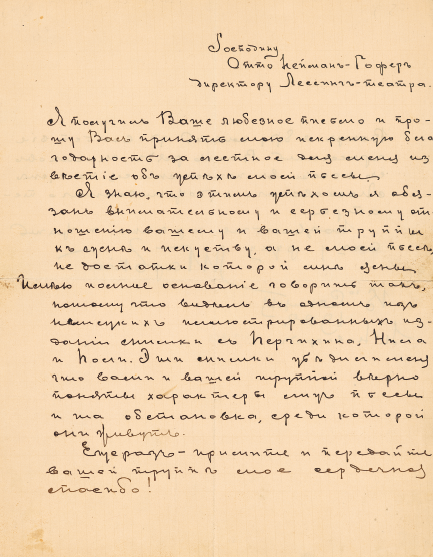 Господину
Отто Нейманъ-Гоферъ
директору Лессингъ-театра.
Я получилъ Ваше любезное письмо и про-
шу Васъ принять мою искреннюю бла
годарность за лестное для меня из
вѣстіе объ успѣхѣ моей пьесы.
Я знаю, что этимъ успѣхомъ я обя-
занъ внимательному и серьезному от
ношенію вашему и вашей труппы
къ сценѣ и искуству, а не моей пьесѣ,
недостатки которой мнѣ ясны.
Имѣю полное основаніе говорить такъ,
потому что видѣлъ въ одномъ изъ
нѣмецкихъ иллюстрированныхъ из-
даній снимки съ Перчихина, Нила
и Поли. Эти снимки убѣдили меня
что вами и вашей труппой вѣрно
поняты характеры лицъ пьесы
и та обстановка, среди которой
они живутъ.
Еще разъ - примите и передайте
вашей труппѣ мое сердечное
спасибо!